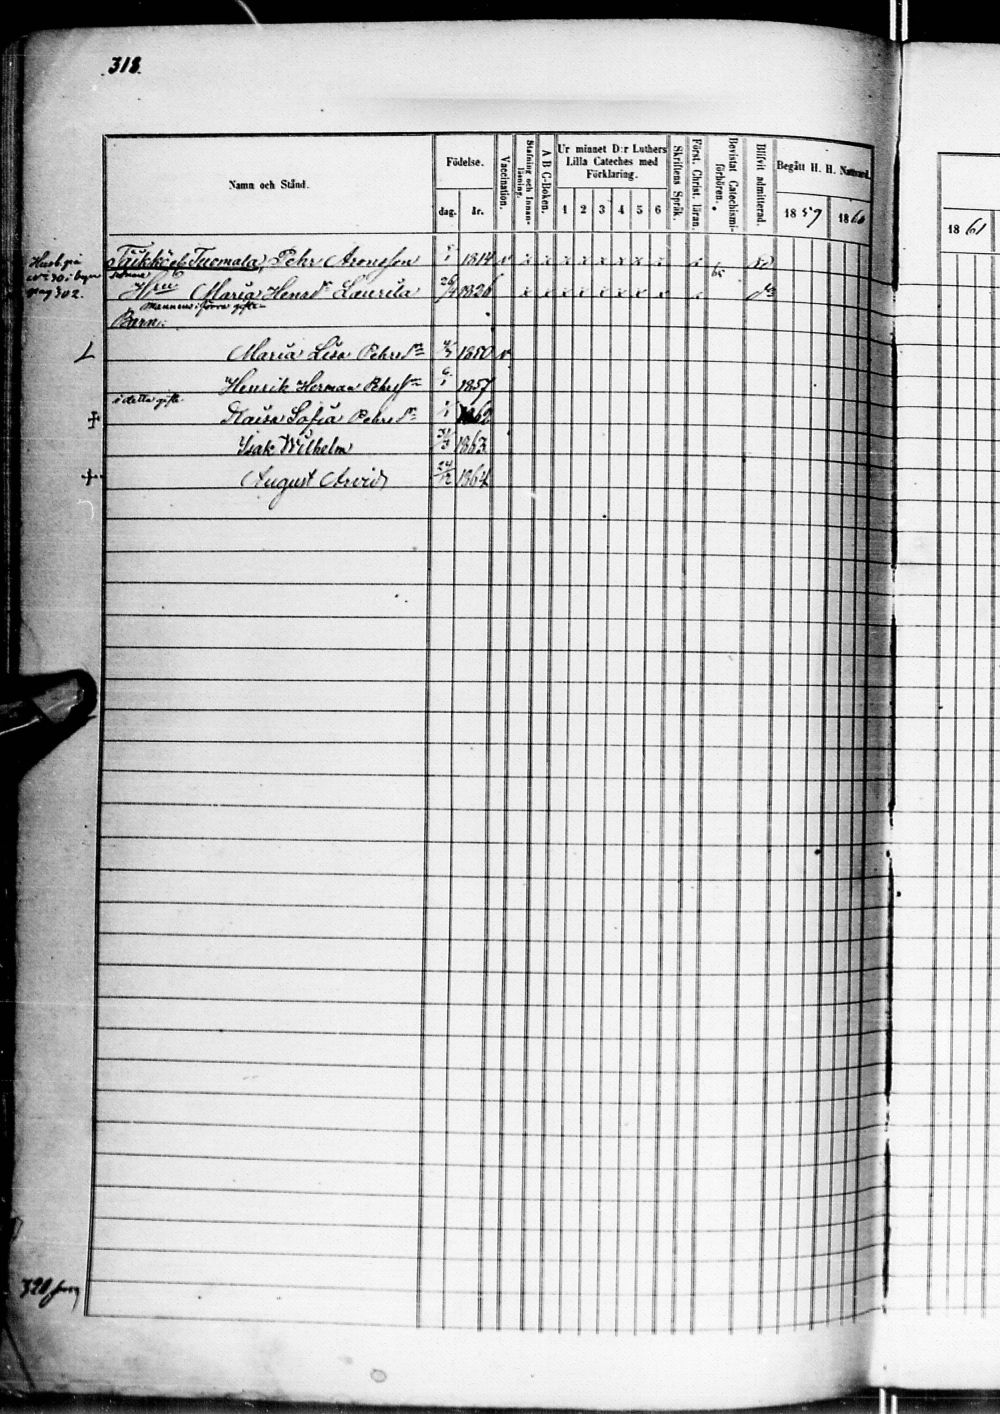 318.
Namn och Stånd.
Födelse.
dag.
år.
Vaccination.
Stafning och Innanläsning.
A B C-Boken.
Ur minnet D:r Luthers Lilla Cateches med Förklaring.
1 2 3 4 5 6
Skriftens Språk.
Först. Christ. läran.
Bevistat Catechismi-förhören.
Blifvit admitterad.
Begått H. H. Nattvard.
1859 1860
1861
Tuomala, Pehr Aronsson 1814 v x x x x x x x x
Hru Maria Henrsdr Laurila 26/4 1826 x x x x x x x x
mannens i förra gifte
Barn:
Maria Lisa Pehrsdr 1850 v
Henrik Herman Pehrsson 1857
i detta gifte
Sofia Pehrsdr
Isak Wilhelm 1863
August Arvid 24/12 1864